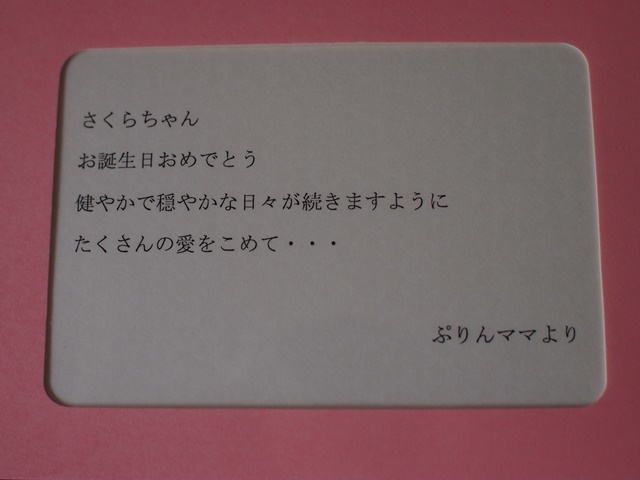 さくらちゃん
お誕生日おめでとう
健やかで穏やかな日々が続きますように
たくさんの愛をこめて・・・
ぷりんママより